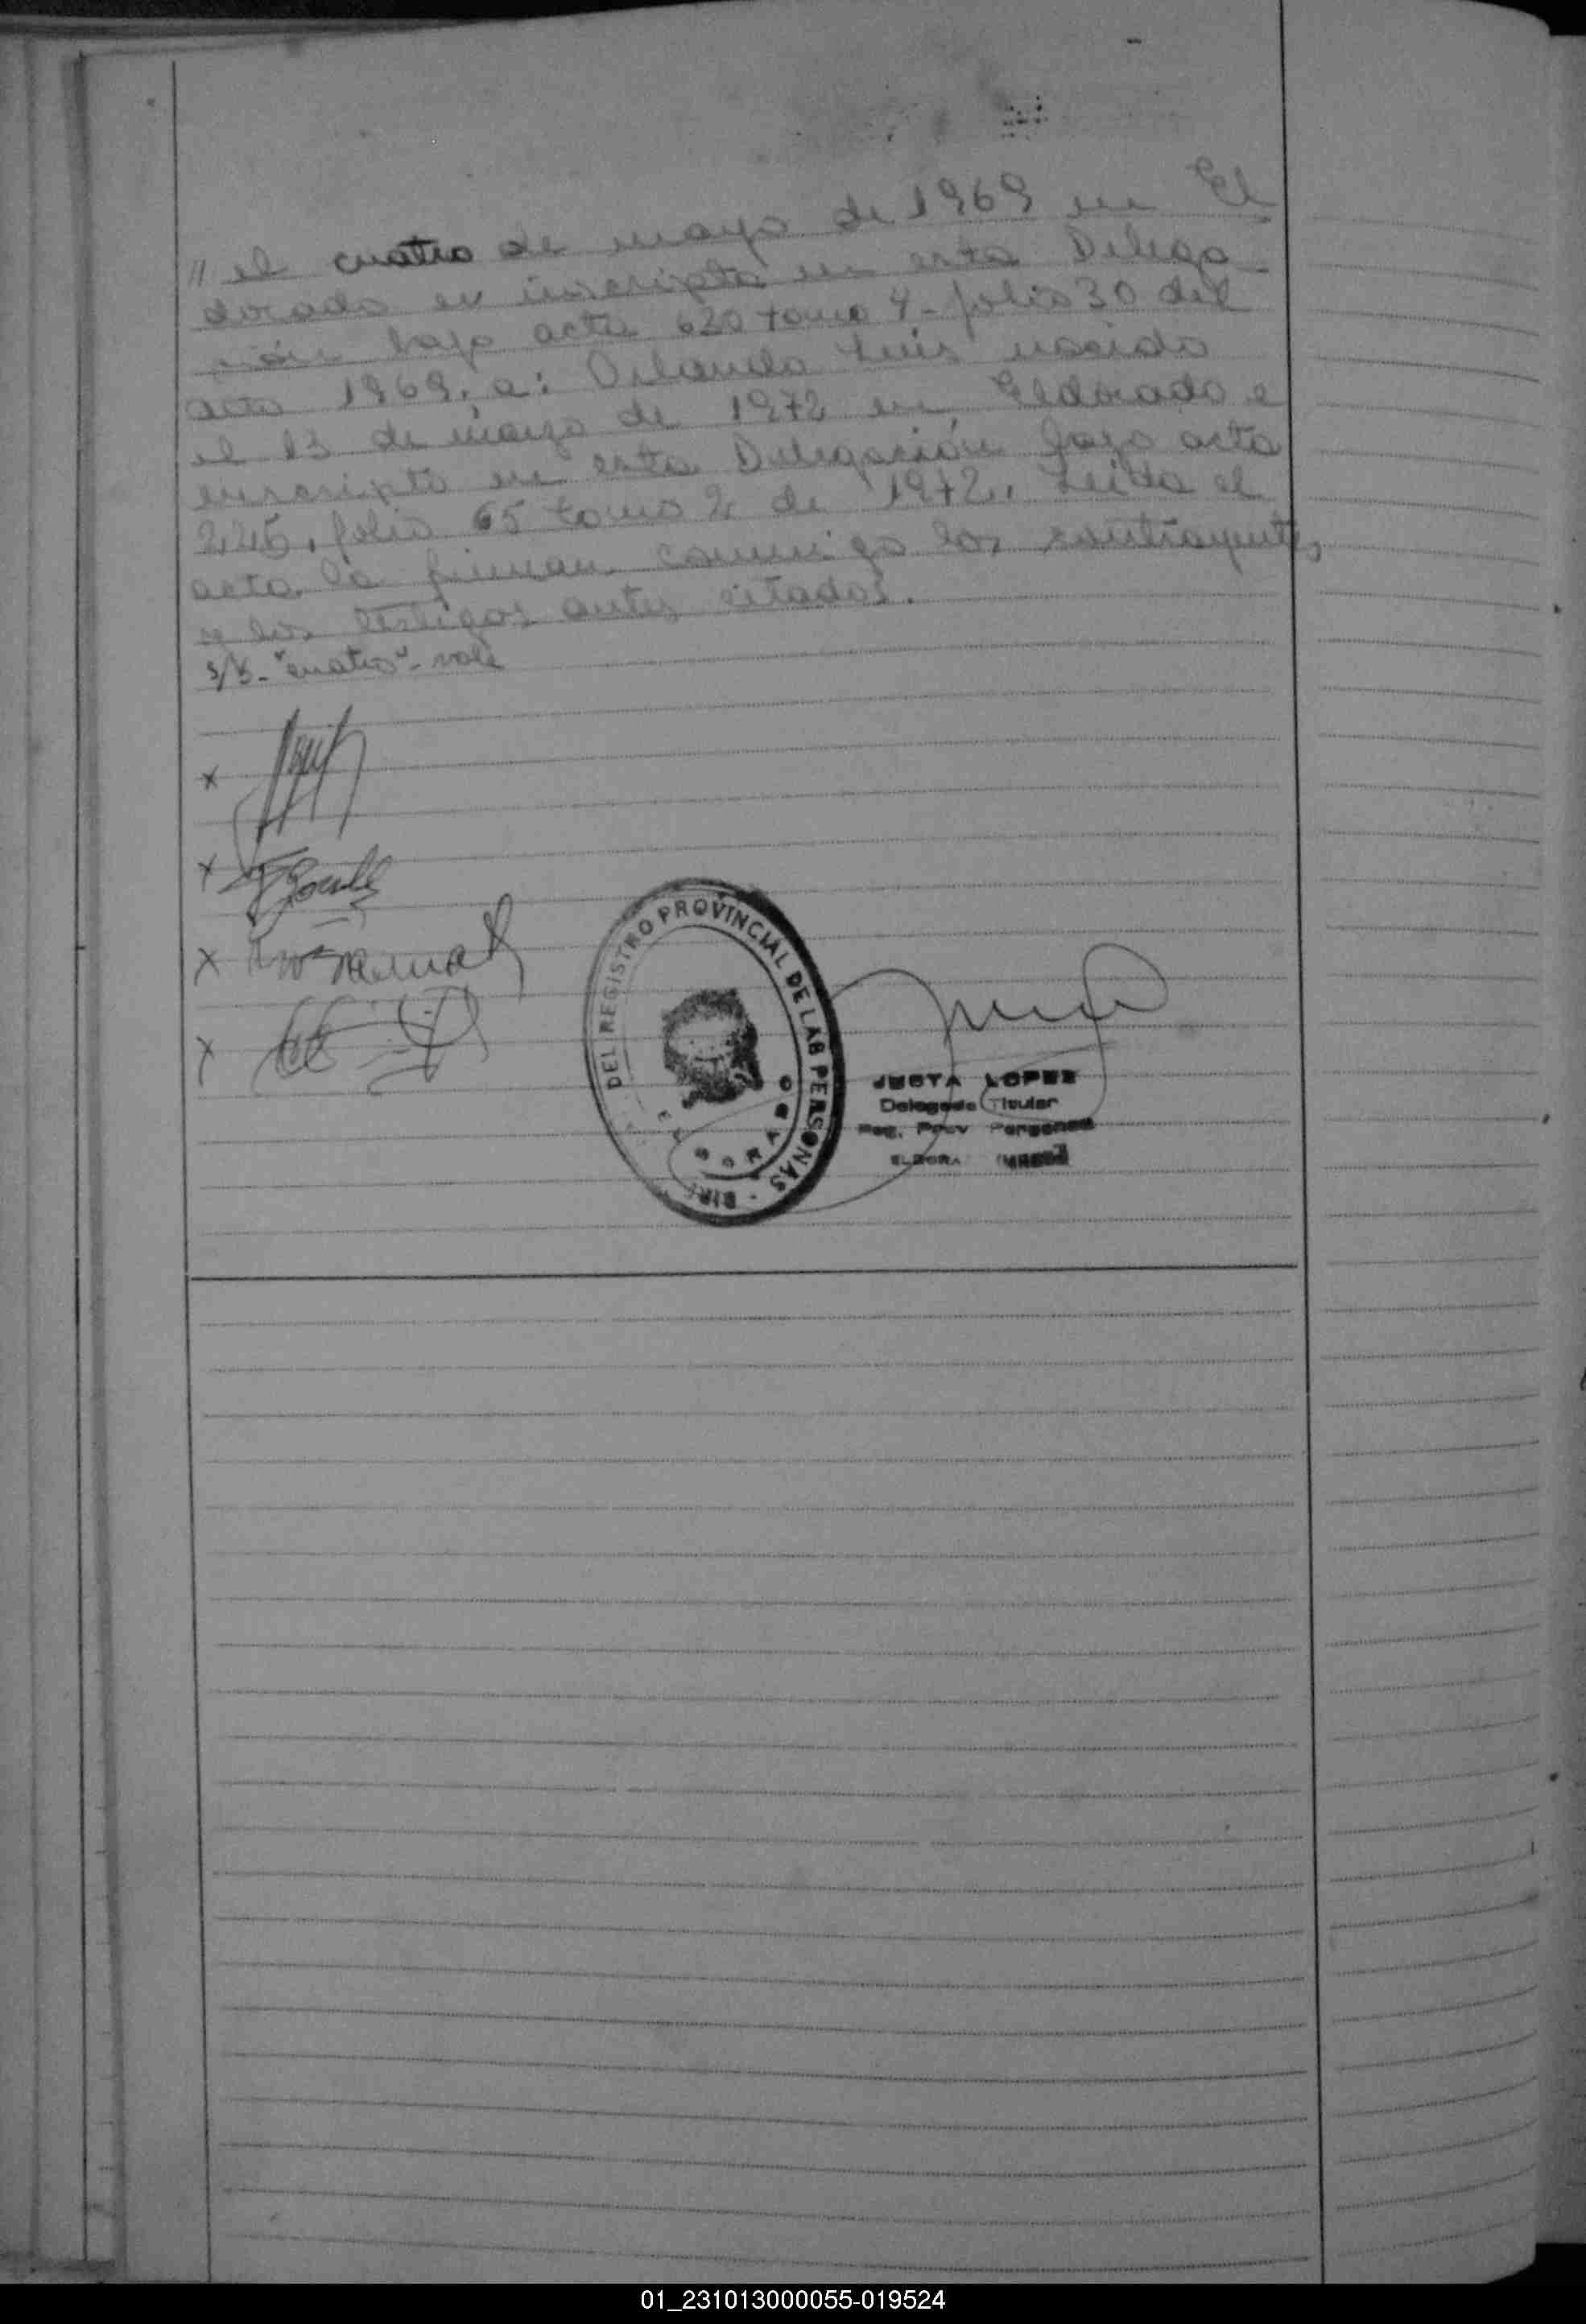 // el cuatro de mayo de 1969 en El
dorado es inscripta en esta Delega
ción bajo acta 620 tomo 4 - folio 30 del
acto 1969, a: Orlando Luis nacido
el 13 de marzo de 1972 en Eldorado e
inscripto en esta Delegación bajo acta
245, folio 65 tomo 2 de 1972,, Leída el
acta la firman conmigo los contrayentes
y los testigos antes citados.
s/b - "cuatro" - vale
x
x
x
x
DEL REGISTRO PROVINCIAL DE LAS PERSONAS
JUSTA LOPEZ
Delegada Titular
Reg. Prov Personas
01_231013000055-019524